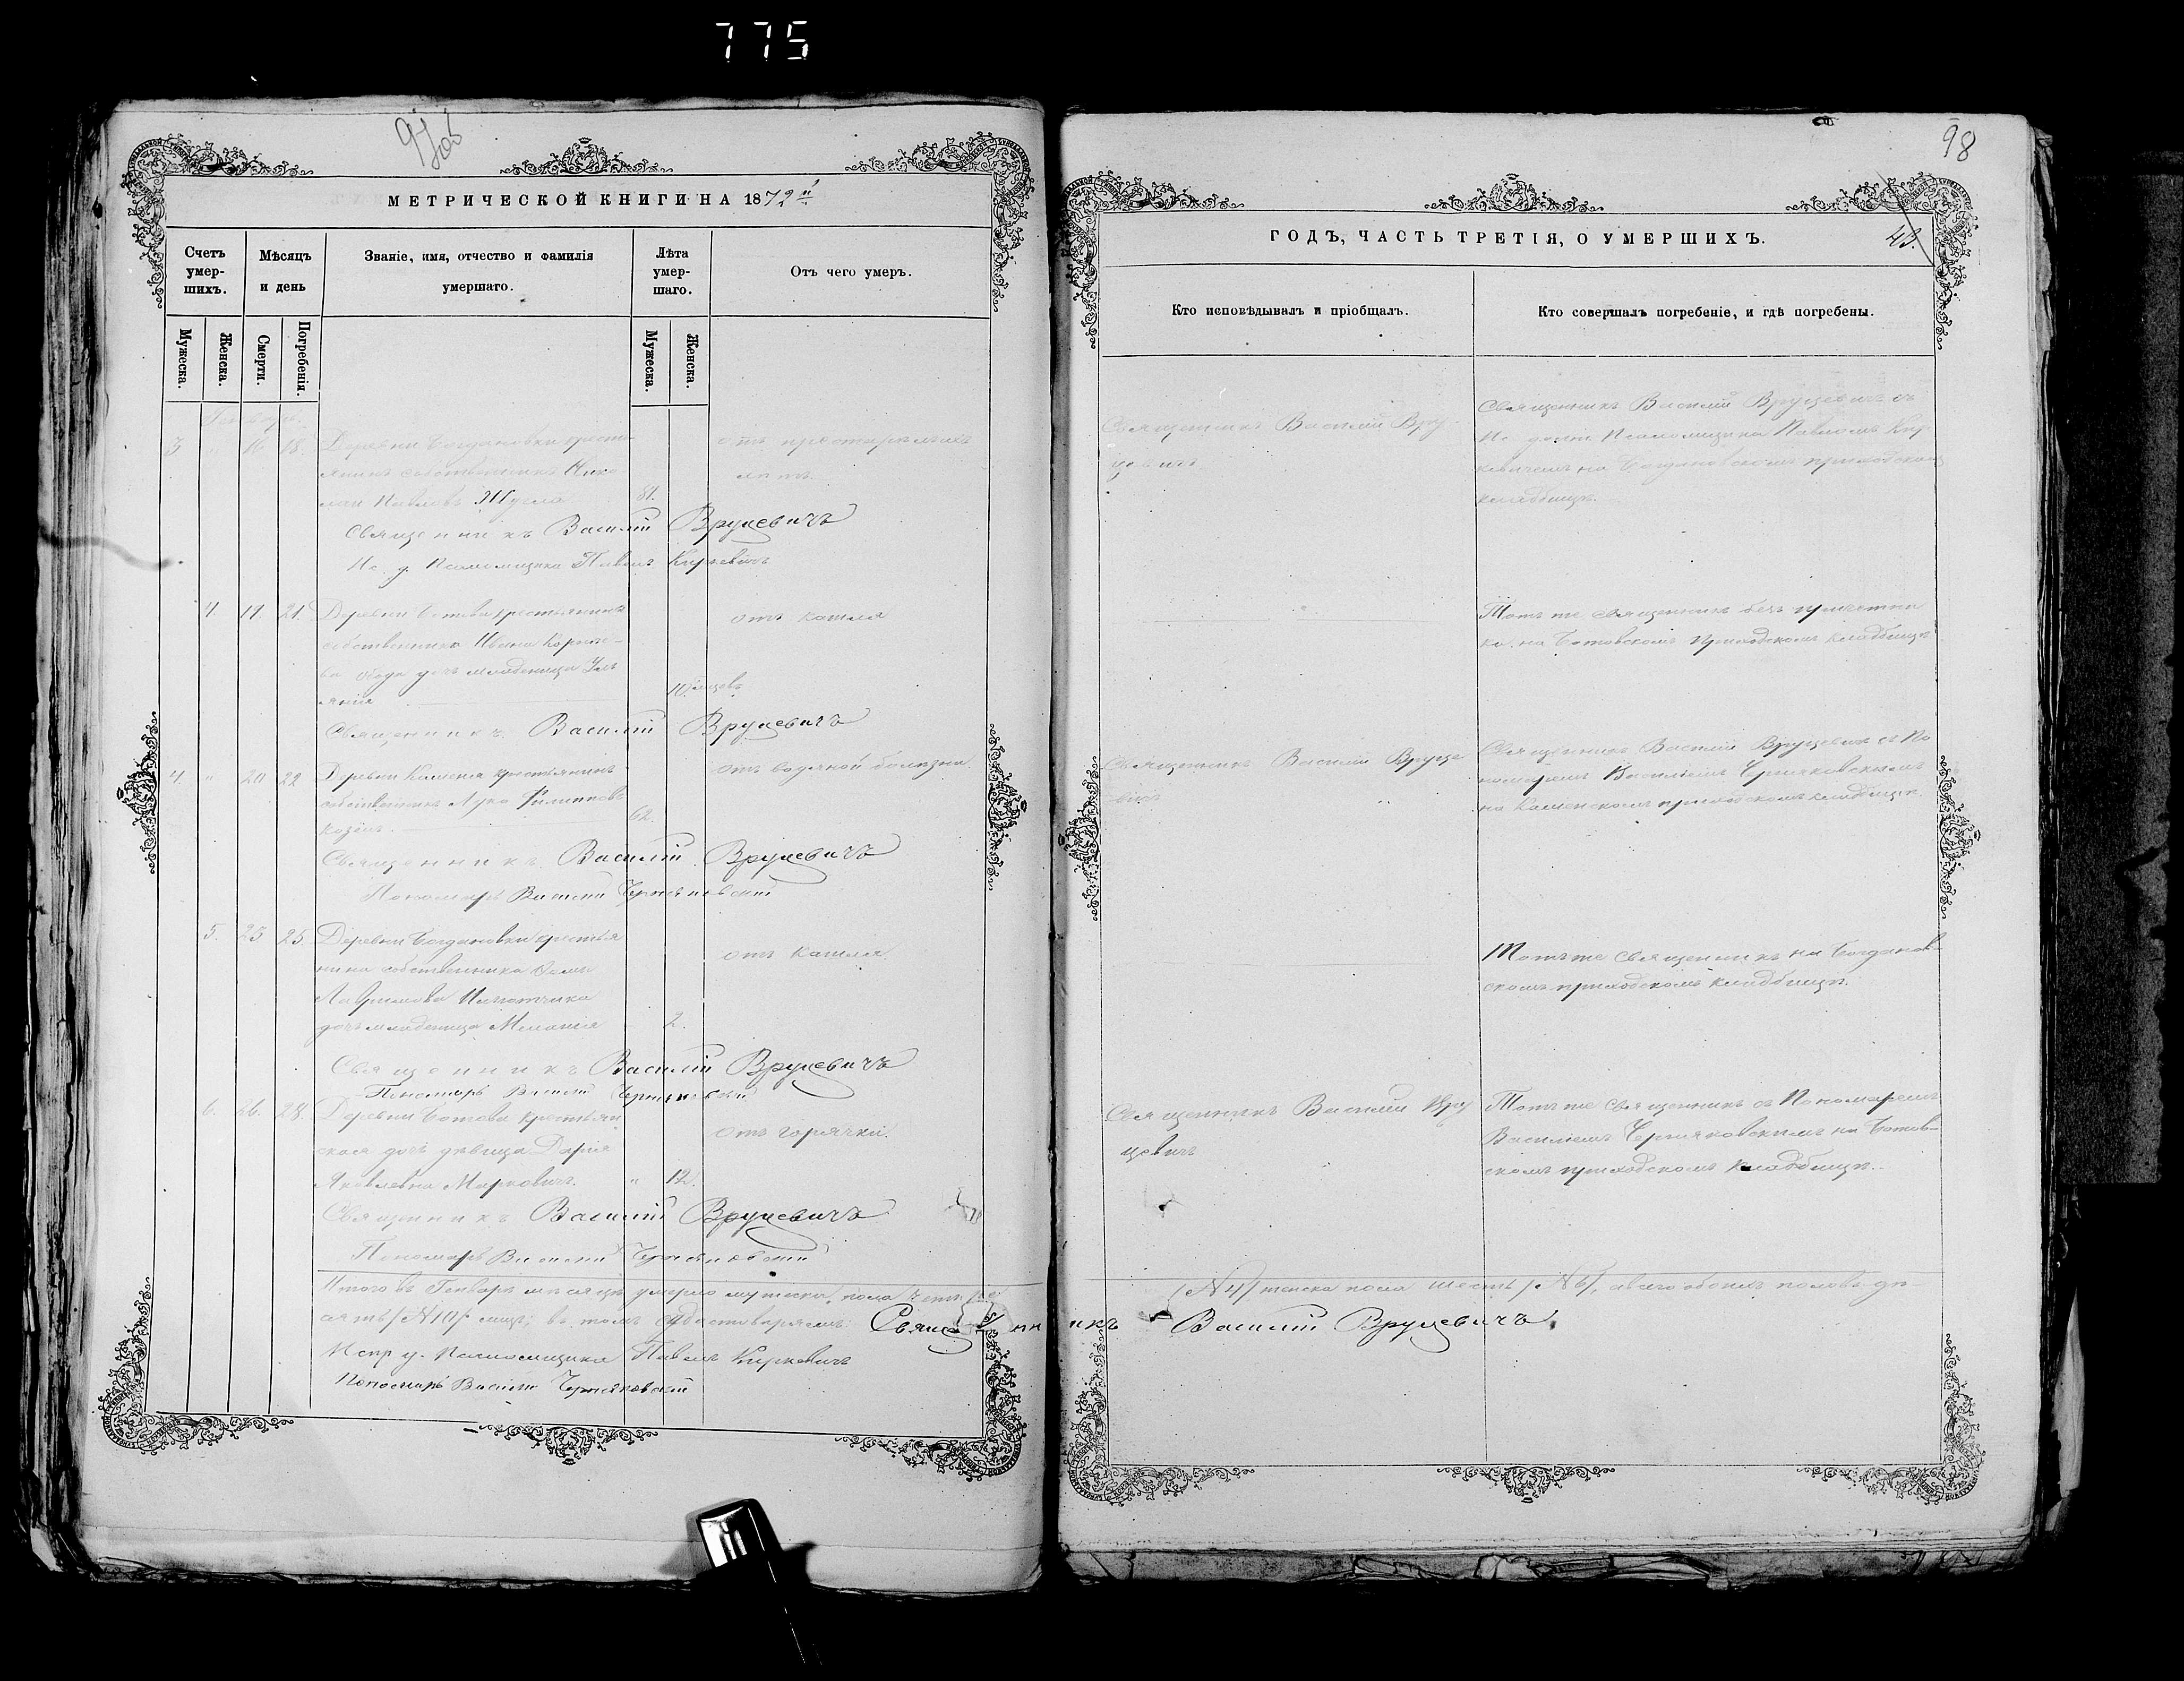 775
97об
МЕТРИЧЕСКОЙ КНИГИ НА 1872й
Счетъ умершихъ.
Мѣсяцъ и день
Званіе, имя, отчество и фамилія умершаго.
Лѣта умершаго.
Отъ чего умеръ.
Мужеска.
Женска.
Смерти.
Погребенія.
Мужеска.
Женска.
Генварь.
3 " 16 18. Деревни Богдановки кресть-
янинъ собственникъ Ник-
Павловъ 81.
отъ престарѣлыхъ
лѣтъ.
Священникъ Василій Вруцевичъ
Ис. д. Псаломщика Павелъ Киркевичъ
4 19. 21. Деревни Ботова крестьянина
собственника Ивана
дочь младеница Уль-
янія 10 мѣсцевъ
отъ кашля
Священникъ Василій Вруцевичъ
4. " 20 22 Деревни Каменя крестьянинъ
собственникъ Лука Филиповъ
Козелъ. 62.
отъ водяной болѣзни.
Священникъ Василій Вруцевичъ
Пономарь Василій Черняковскій
5. 23 25. Деревни Богдановки крестья-
нина собственника
дочь младеница Меланія 2.
отъ кашля.
Священникъ Василій Вруцевичъ
Пономарь Василій Черняковскій
6. 26. 28. Деревни Ботова крестьян-
ская дочь дѣвица Дарія
Яковлевна Марковичъ. " 12.
отъ горячки.
Священникъ Василій Вруцевичъ
Пономарь Василій Черняковскій
Итого въ Генварѣ мѣсяцѣ умерло мужеска пола четыре
(№ 4) женска пола шесть (№ 6), а всего обоихъ половъ де-
сять (№ 10) лицъ; въ томъ удостовѣряемъ: Священникъ Василій Вруцевичъ.
Испр. д. Псаломщика Павелъ Киркевичъ
Пономарь Василій Черняковскій
98
ГОДЪ, ЧАСТЬ ТРЕТІЯ, О УМЕРШИХЪ.
43.
Кто исповѣдывалъ и пріобщалъ.
Кто совершалъ погребеніе, и гдѣ погребены.
Священникъ Василій Вру-
цевичъ
Священникъ Василій Вруцевичъ съ
Ис. долж. Псаломщика Павломъ Кир-
кевичемъ на Богдановскомъ приходскомъ
кладбищѣ.
Тотъ же священникъ безъ причетни-
ка. на Ботовскомъ приходскомъ кладбищѣ
Священникъ Василій Вруце-
вичъ
Священникъ Василій Вруцевичъ съ По-
номаремъ Василіемъ Черняковскимъ
на Каменскомъ приходскомъ кладбищѣ.
Тотъ же священникъ на Богданов-
скомъ приходскомъ кладбищѣ.
Священникъ Василій Вру-
цевичъ
Тотъ же священникъ съ Пономаремъ
Василіемъ Черняковскимъ на Ботов-
скомъ приходскомъ кладбищѣ.